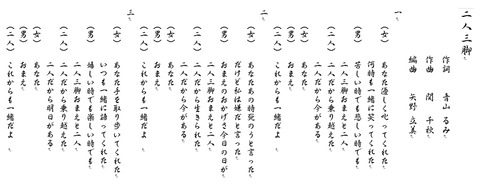 二人三脚
作詞 青山るみ
作曲 関 千秋
編曲 矢野 立美
一
(女) あなた優しく叱ってくれた
何時も一緒に笑ってくれた
(男) 苦しい時でも悲しい時も
二人三脚おまえと二人
(二人) 二人だから今がある
(女) あなた
(男) おまえ
(二人) これからも一緒だよ
二
(女) あなたあの時死のうと言った
だけど私は嫌だと言った
(男) おまえのおかげさ今日の日が
二人三脚おまえと二人
(二人) 二人だから生きられた
二人だから今がある
(女) あなた
(男) おまえ
(二人) これからも一緒だよ
三
(女) あなた手を取り歩いてくれた
いつも一緒に語ってくれた
(男) 嬉しい時でも楽しい時でも
二人三脚おまえと二人
(二人) 二人だから乗り越えた
二人だから明日がある
(女) あなた
(男) おまえ
(二人) これからも一緒だよ